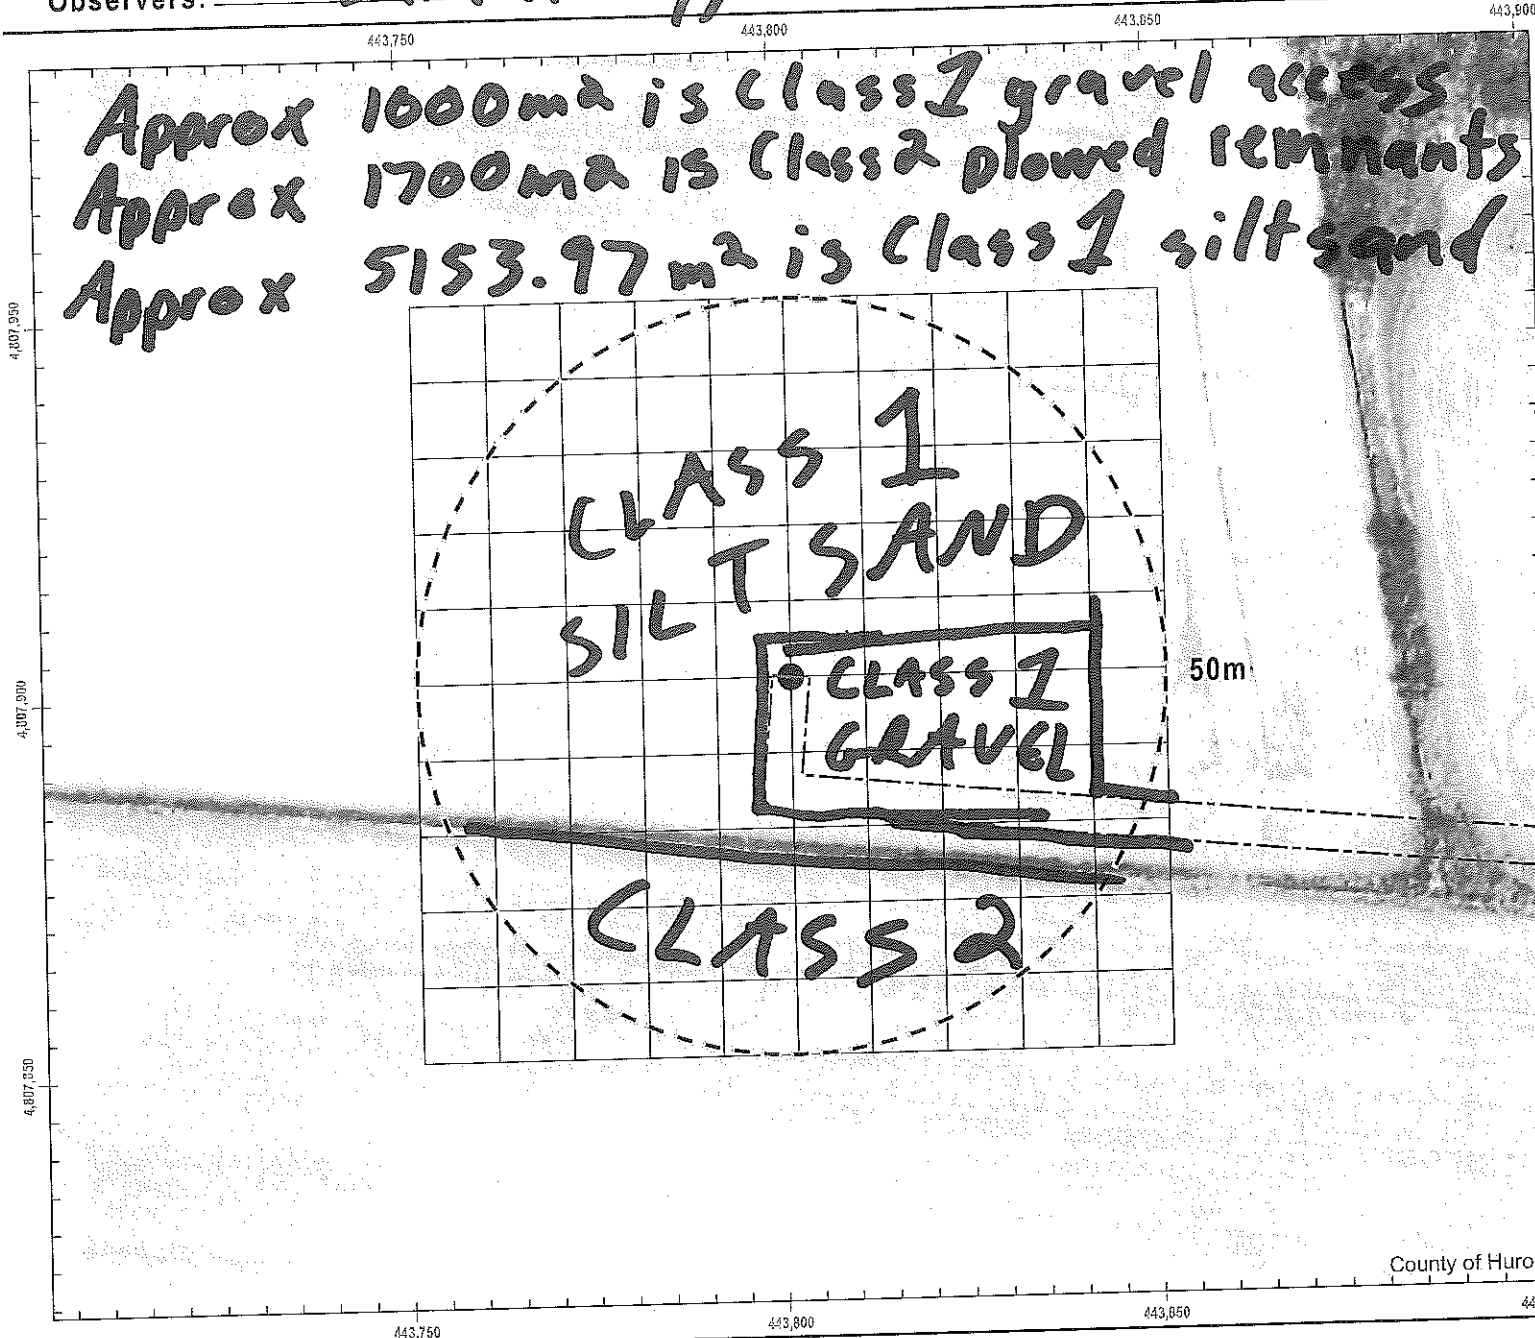 Observers:
443,750 443,800 443,850 443,900
Approx 1000m² is Class 1 gravel access
Approx 1700m² is Class 2 plowed remnants
Approx 5153.97m² is Class 1 silt sand
4,807,950
CLASS 1
SILT SAND
CLASS 1
GRAVEL
50m
4,807,900
CLASS 2
4,807,850
County of Huro
443,750 443,800 443,850 44